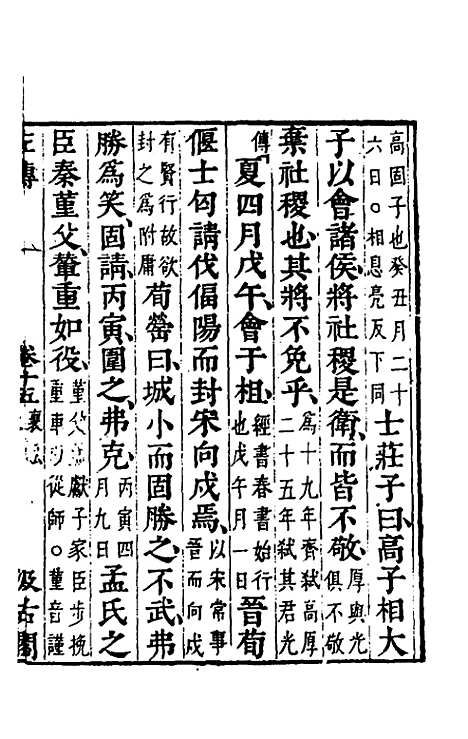 高固子也癸丑月二十六日○相息亮反下同士莊子曰高子相大
子以會諸侯將社稷是衛而皆不敬厚與光俱不敬
棄社稷也其將不免乎為十九年齊弒高厚二十五年弒其君光
傳夏四月戊午會于柤經書春書始行也戊午月一日晉荀
偃士匄請伐偪陽而封宋向戌焉以宋常事晉而向戌
有賢行故欲封之為附庸荀罃曰城小而固勝之不武弗
勝為笑固請丙寅圍之弗克丙寅四月九日孟氏之
臣秦堇父輦重如役堇父獻子家臣步挽重車以從師○堇音謹
左傳 卷十五襄公 汲古閣